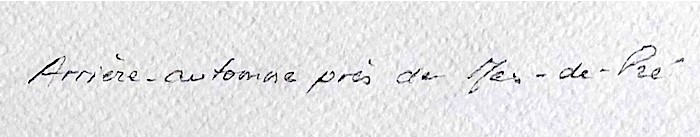 Arrière-automne près de Mas-de-Pré